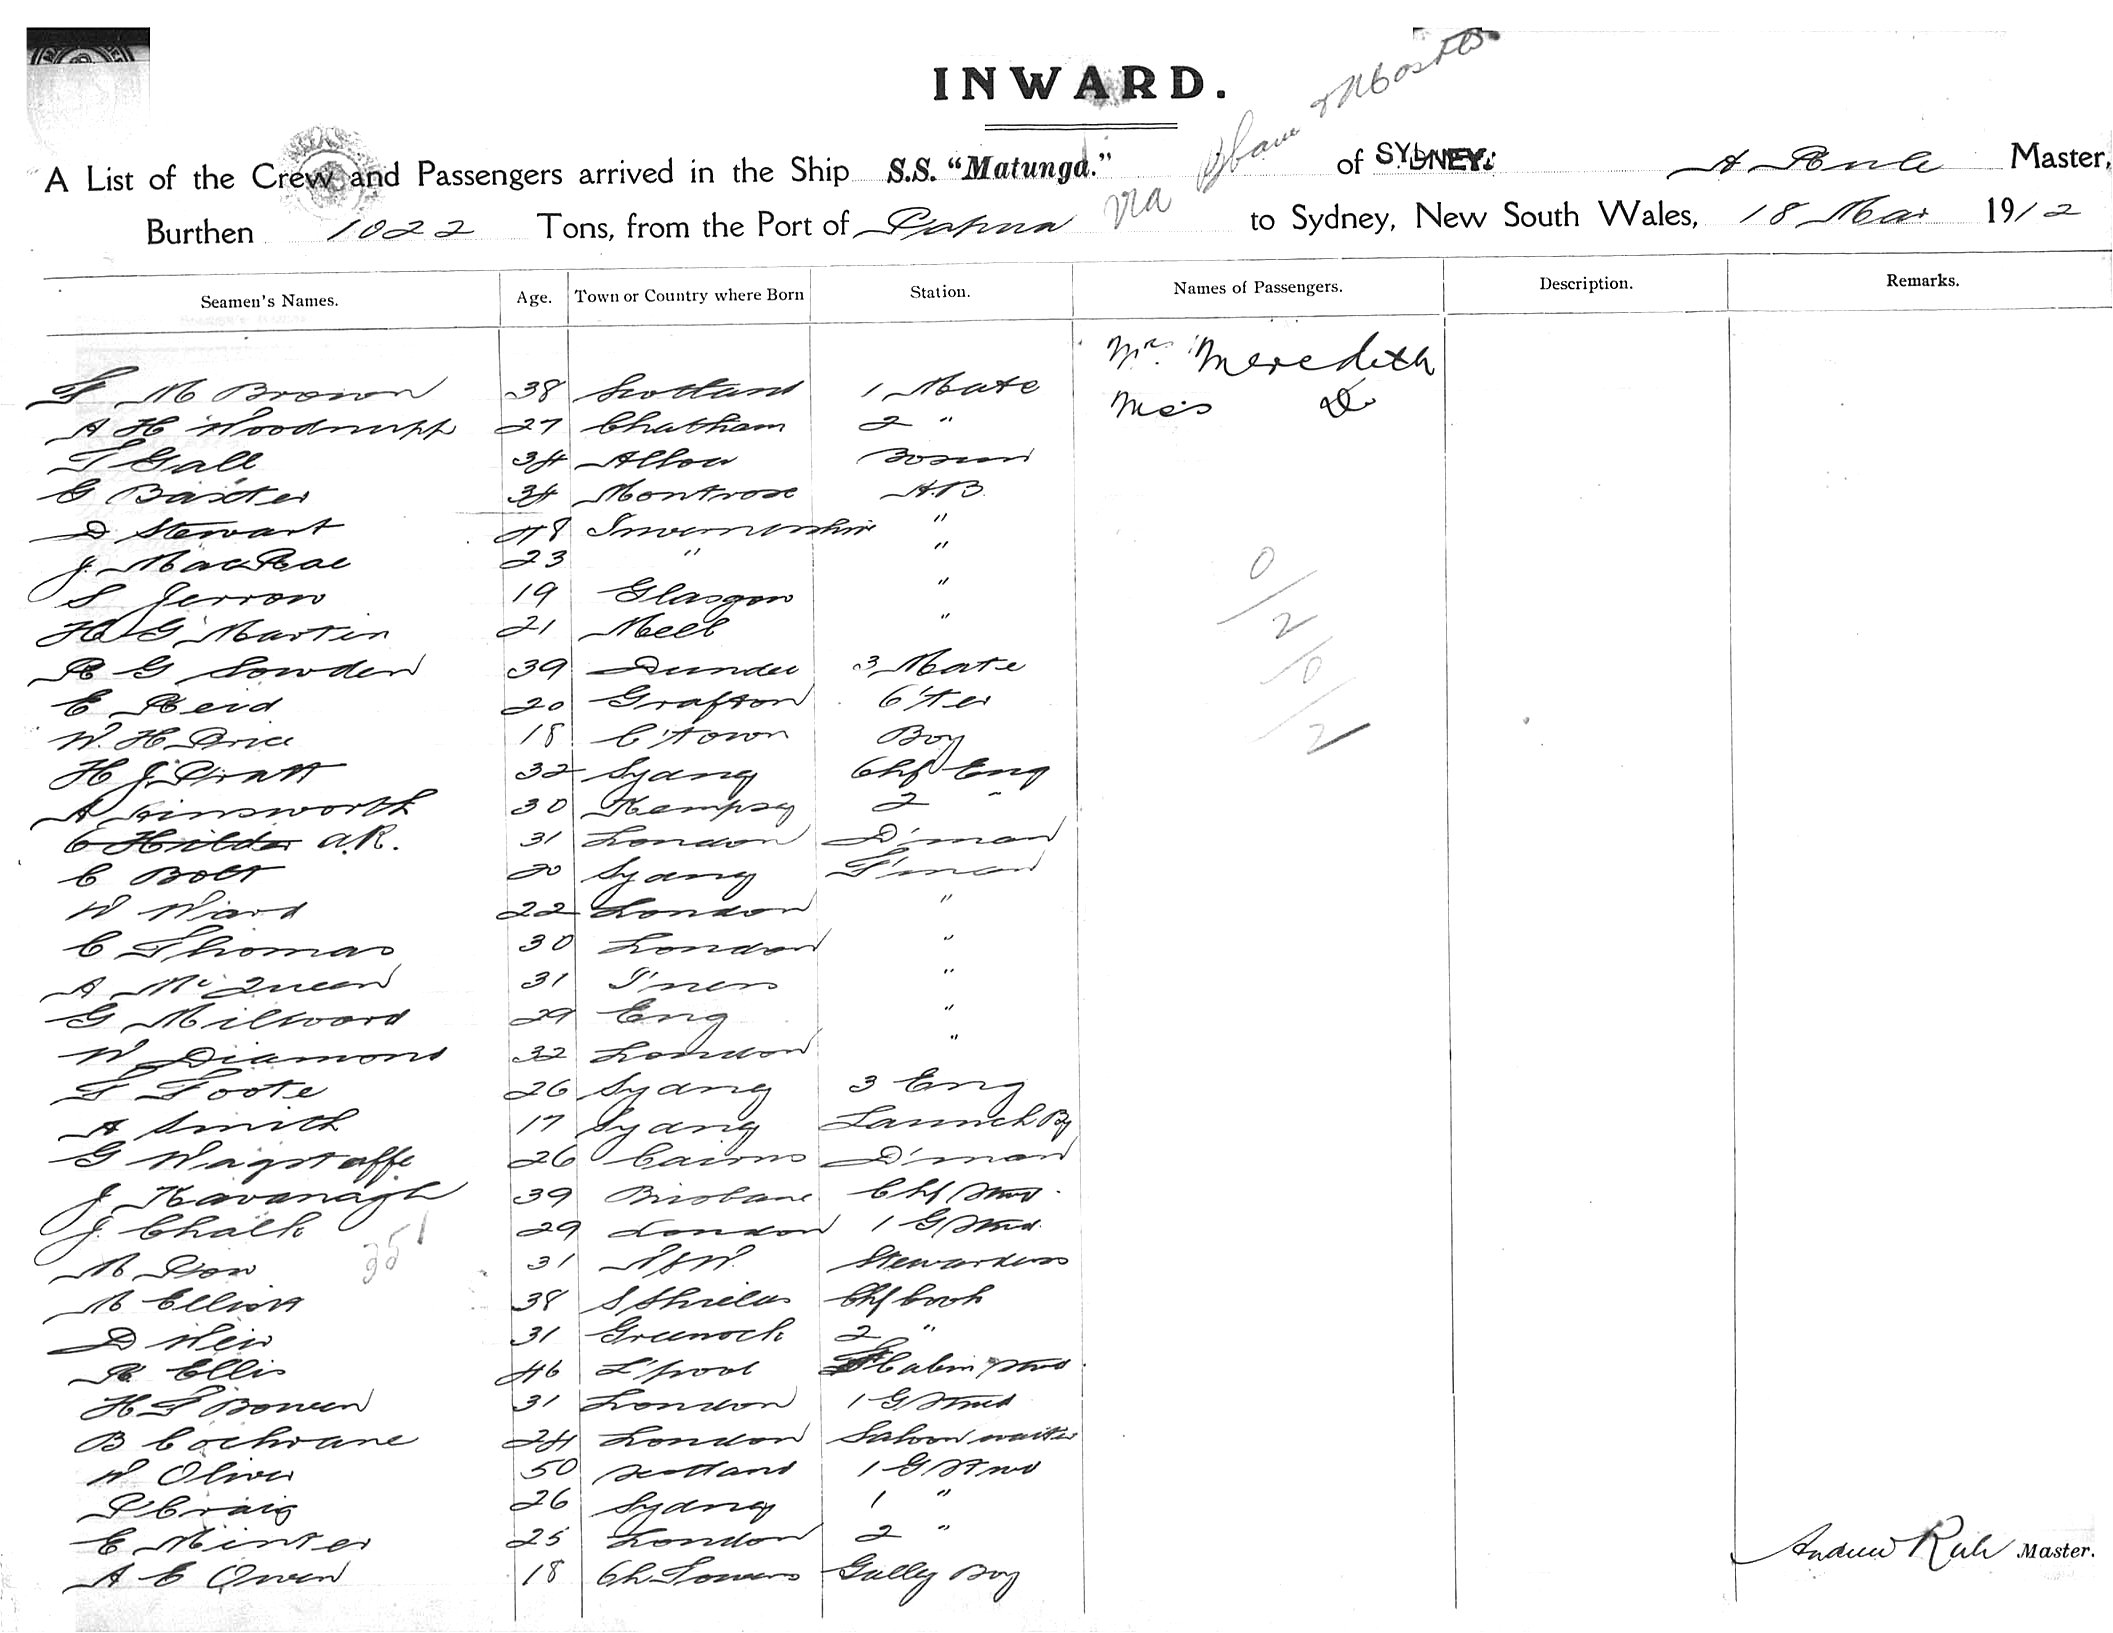 INWARD.
A List of the Crew and Passengers arrived in the Ship S.S. "Matunga." of SYDNEY. A Master,
via Bbane
Burthen 1022 Tons, from the Port of Papua to Sydney, New South Wales, 18 Mar 1912
Seamen's Names. Age. Town or Country where Born Station. Names of Passengers. Description. Remarks.
Mr. Meredith
F M Brown 38 Scotland 1 Mate
Miss Do
A H Woodruff 27 Chatham 2 "
Gall 34 Alloa Bosun
G Baxter 34 Montrose A.B.
D Stewart 48 Invernesshire "
J. MacRae 23 " "
S Jerrow 19 Glasgow "
H G Martin 21 Melb "
R G Sowden 39 Dundee 3 Mate
E Reid 20 Grafton C'ter
W. H Price 18 C'town Boy
H J. Pratt 32 Sydney Chf Eng
A Ainsworth 30 Kempsey 2 "
C Hilder A.R. 31 London D'man
C Bolt 20 Sydney F'man
W Ward 22 London "
C Thomas 30 London "
A McQueen 31 "
G Millward 29 Eng "
W Diamond 32 London "
F Foote 26 Sydney 3 Eng
A Smith 17 Sydney Launch By
G Wagstaffe 26 Cairns D'man
J Kavanagh 39 Brisbane Chf Stwd.
J. Chalk 29 London 1 G Stwd.
351
M Dow 31 NSW. Stewardess
M Elliott 38 S Shields Chf Cook
D Weir 31 Greenock 2 "
R Ellis 46 L'pool Cabin Stwd.
H F Bowen 31 London 1 G Stwd
B Cochrane 24 London Saloon waiter
W Oliver 50 Scotland 1 G Stwd
P Craig 26 Sydney 1 "
E Minter 25 London 2 "
Andrew Master.
A E Owen 18 Ch Towers Galley Boy
0/2/0/2